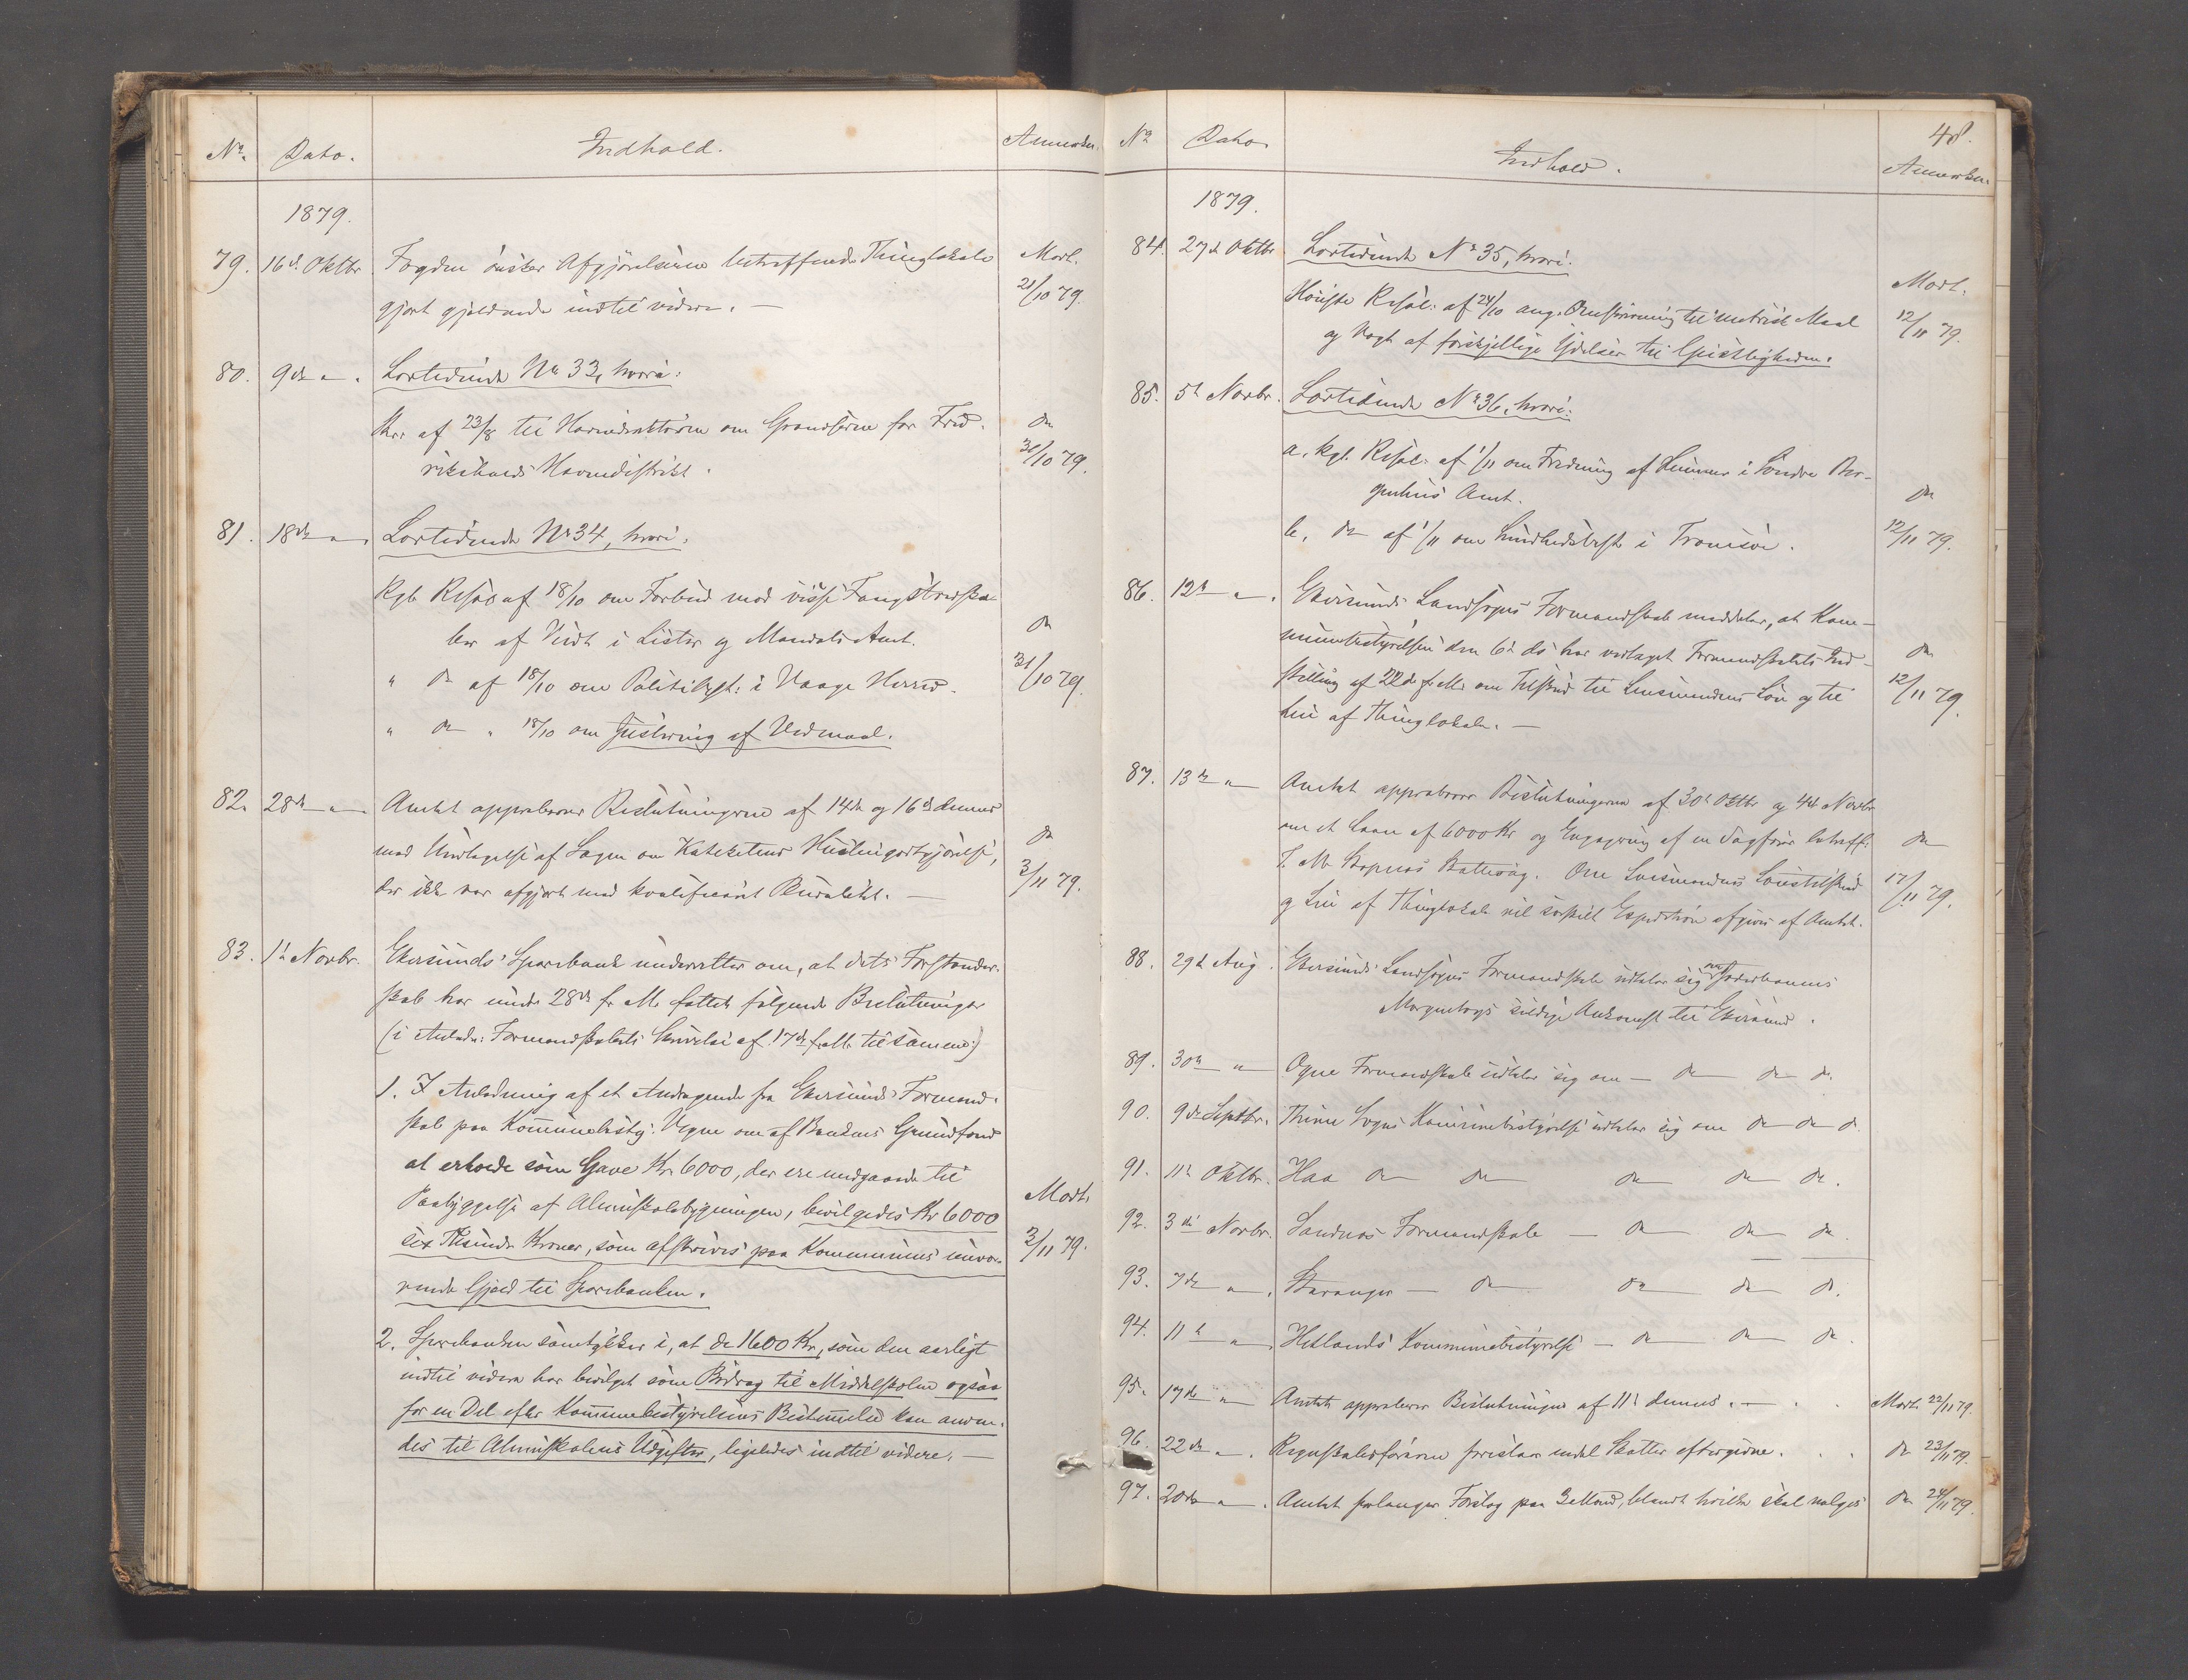 No. Dato. Indhold. Anmerkn.
1879.
79. 16de Oktbr Fogden ønsker Afgjørelserne betreffende Thinglokale Modt.
gjort gjældende indtil videre. — 21/10 79.
80. 9de " . Lovtidende No 33, hvori:
Skr. af 23/8 til Havnedirektøren om Grændserne for Fred- do
rikshalds Havnedistrikt. 30/10 79.
81. 18de " . Lovtidende No 34, hvori:
Kgl. Resol. af 18/10 om Forbud mod visse Fangstredska-
ber af Vidt i Lister og Mandals Amt. do
" do af 18/10 om Politibest: i Vaage Herred. 31/10 79.
" do " 18/10 om Justering af Vedmaal.
82. 28de " Amtet approberer Beslutningerne af 14de og 16de dennes
med Undtagelse af Sagen om Katekètens Huslingodtgjørelse, do
der ikke var afgjort med kvalificeret Pluralitet. — 3/11 79.
83. 1ste Novbr. Ekersunds Sparebank underretter om, at dets Forstander-
skab har under 28de f. M. fattet følgende Beslutninger
(i Anledn: Formandskabets Skrivelse af 17de f. M. til samme:)
1. I Anledning af et Andragende fra Ekersunds Formand-
skab paa Kommunebesty: Vegne om af Bankens Grundfond
at erholde som Gave Kr. 6000, der ere medgaaede til
Paabyggelse af Almueskolebygningen, bevilgedes Kr 6000 Modt.
sex Tusinde Kroner, som afskrives paa Kommunens nuvæ- 3/11 79.
rende Gjæld til Sparebanken.
2. Sparebanken samtykker i, at de 1600 Kr, som den aarligt
indtil videre har bevilget som Bidrag til Middelskolen ogsaa
for en Del efter Kommunebestyrelsens Bestemmelse kan anven-
des til Almueskolens Udgifter, ligeledes indtil videre. —
48.
No Dato Indhold. Anmerkn.
1879.
84. 27de Oktbr Lovtidende No 35, hvori: Modt.
Høieste Resol: af 24/10 ang. Omskrivning til metrisk Maal 12/11 79.
og Vægt af forskjellige Ydelser til Geistligheden.
85. 5te Novbr. Lovtidende No 36, hvori:
a, kgl. Resol. af 1/11 om Fredning af Hummer i Søndre Ber- do
genhus Amt.
b, do af 1/11 om Sundhedsbest. i Tromsø. 12/11 79.
86. 12te " . Ekersunds Landsogns Formandskab meddeler, at Kom-
munebestyrelsen den 6te ds har vedtaget Formandskabets Ind- do
stilling af 22de f. M. om Tilskud til Lensmandens Løn og til 12/11 79.
Leie af Thinglokale. —
87. 13de " Amtet approberer Beslutningerne af 30te Oktbr og 4de Novbr
om et Laan af 6000 Kr og Engagering af en Sagfører betreff: do
Om Lensmandens Lønstilskud 17/11 79.
og Leie af Thinglokale vil særskilt Expedition afgives af Amtet.
88. 29de Aug. Ekersunds Landsogns Formandskab udtaler sig om Jæderbanens
Morgentogs sildige Ankomst til Ekersund.
89. 30te " Ogne Formandskab udtaler sig om — do do do.
90. 9de Septbr. Thime Sogns Kommunebestyrelse udtaler sig om do do do.
91. 11te Oktbr. Haa do do do do do.
92. 3die Novbr. Sandnæs Formandskab — do do do.
93. 7de " . Stavanger — do do do do.
94. 11te " . Hetlands Kommunebestyrelse — do do do.
95. 17de " Amtets approberer Beslutningen af 11te dennes. — Modt. 22/11 79.
96. 22de " . Regnskabsføreren foreslaar endel Skatter eftergivne. do 23/11 79.
97. 20de " . Amtet forlanger Forslag paa 3 Mænd, blandt hvilke skal vælges do 24/11 79.